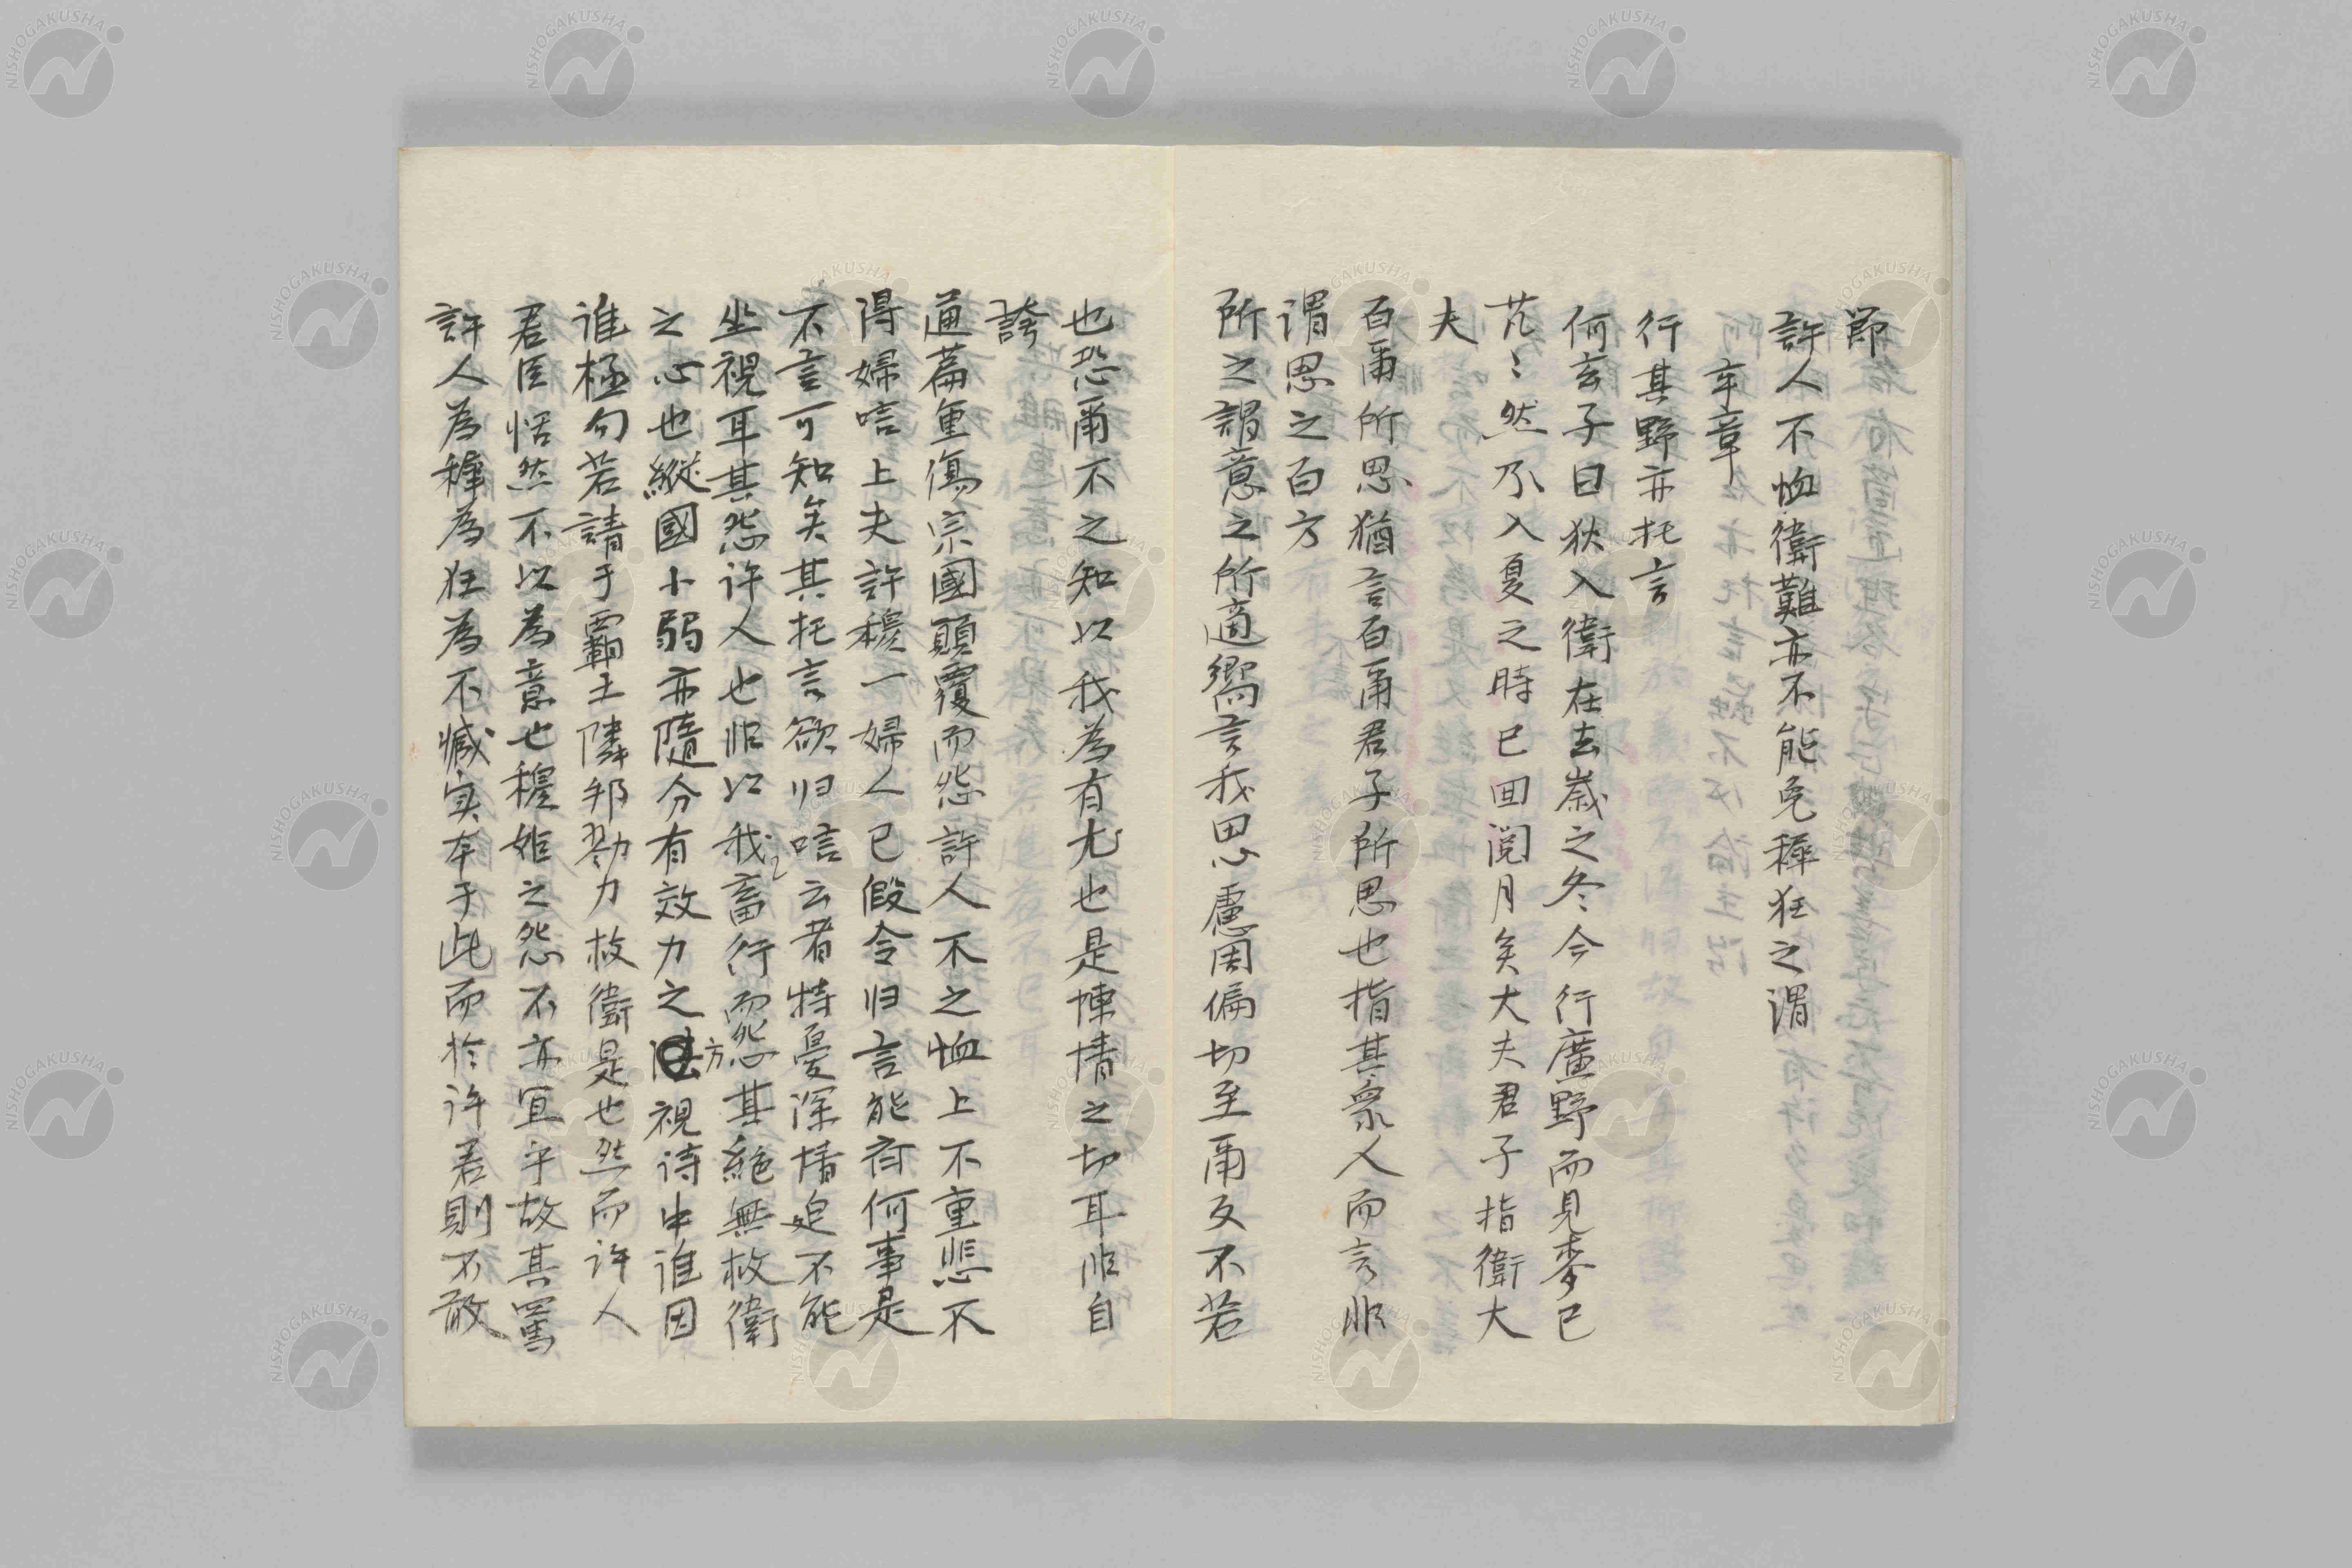 節
許人不恤衛難亦不能免穉狂之謂
卒章
行其野亦托言
何玄子曰狄入衛在去歳之冬今行廣野而見麥已
芃〻然乃入夏之時已囬閲月矣大夫君子指衛大
夫
百爾所思猶言百爾君子所思也指其衆人而言非
謂思之百方
所之謂意之所適嚮言我思慮周偏切至爾反不若
也恐爾不之知以我為有尤也是悚情之切耳非自
誇
通篇重傷宗國顛覆而怨許人不之恤上不重悲不
得婦唁上夫許穆一婦人已假令归言能府何事是
不言可知矣其托言欲归唁云者特憂深情迫不能
坐視耳其怨许人也非以我之畜行而怨其絶無救衛
之心也縦國小弱亦隨分有效力之方視诗中谁因
谁極句若請于覇王隣邦勠力救衛是也然而许人
君臣恬然不以為意也穆姫之怨不亦冝乎故其罵
許人為穉為狂為不臧実本于此而於许君則不敢
NISHOGAKUSHA